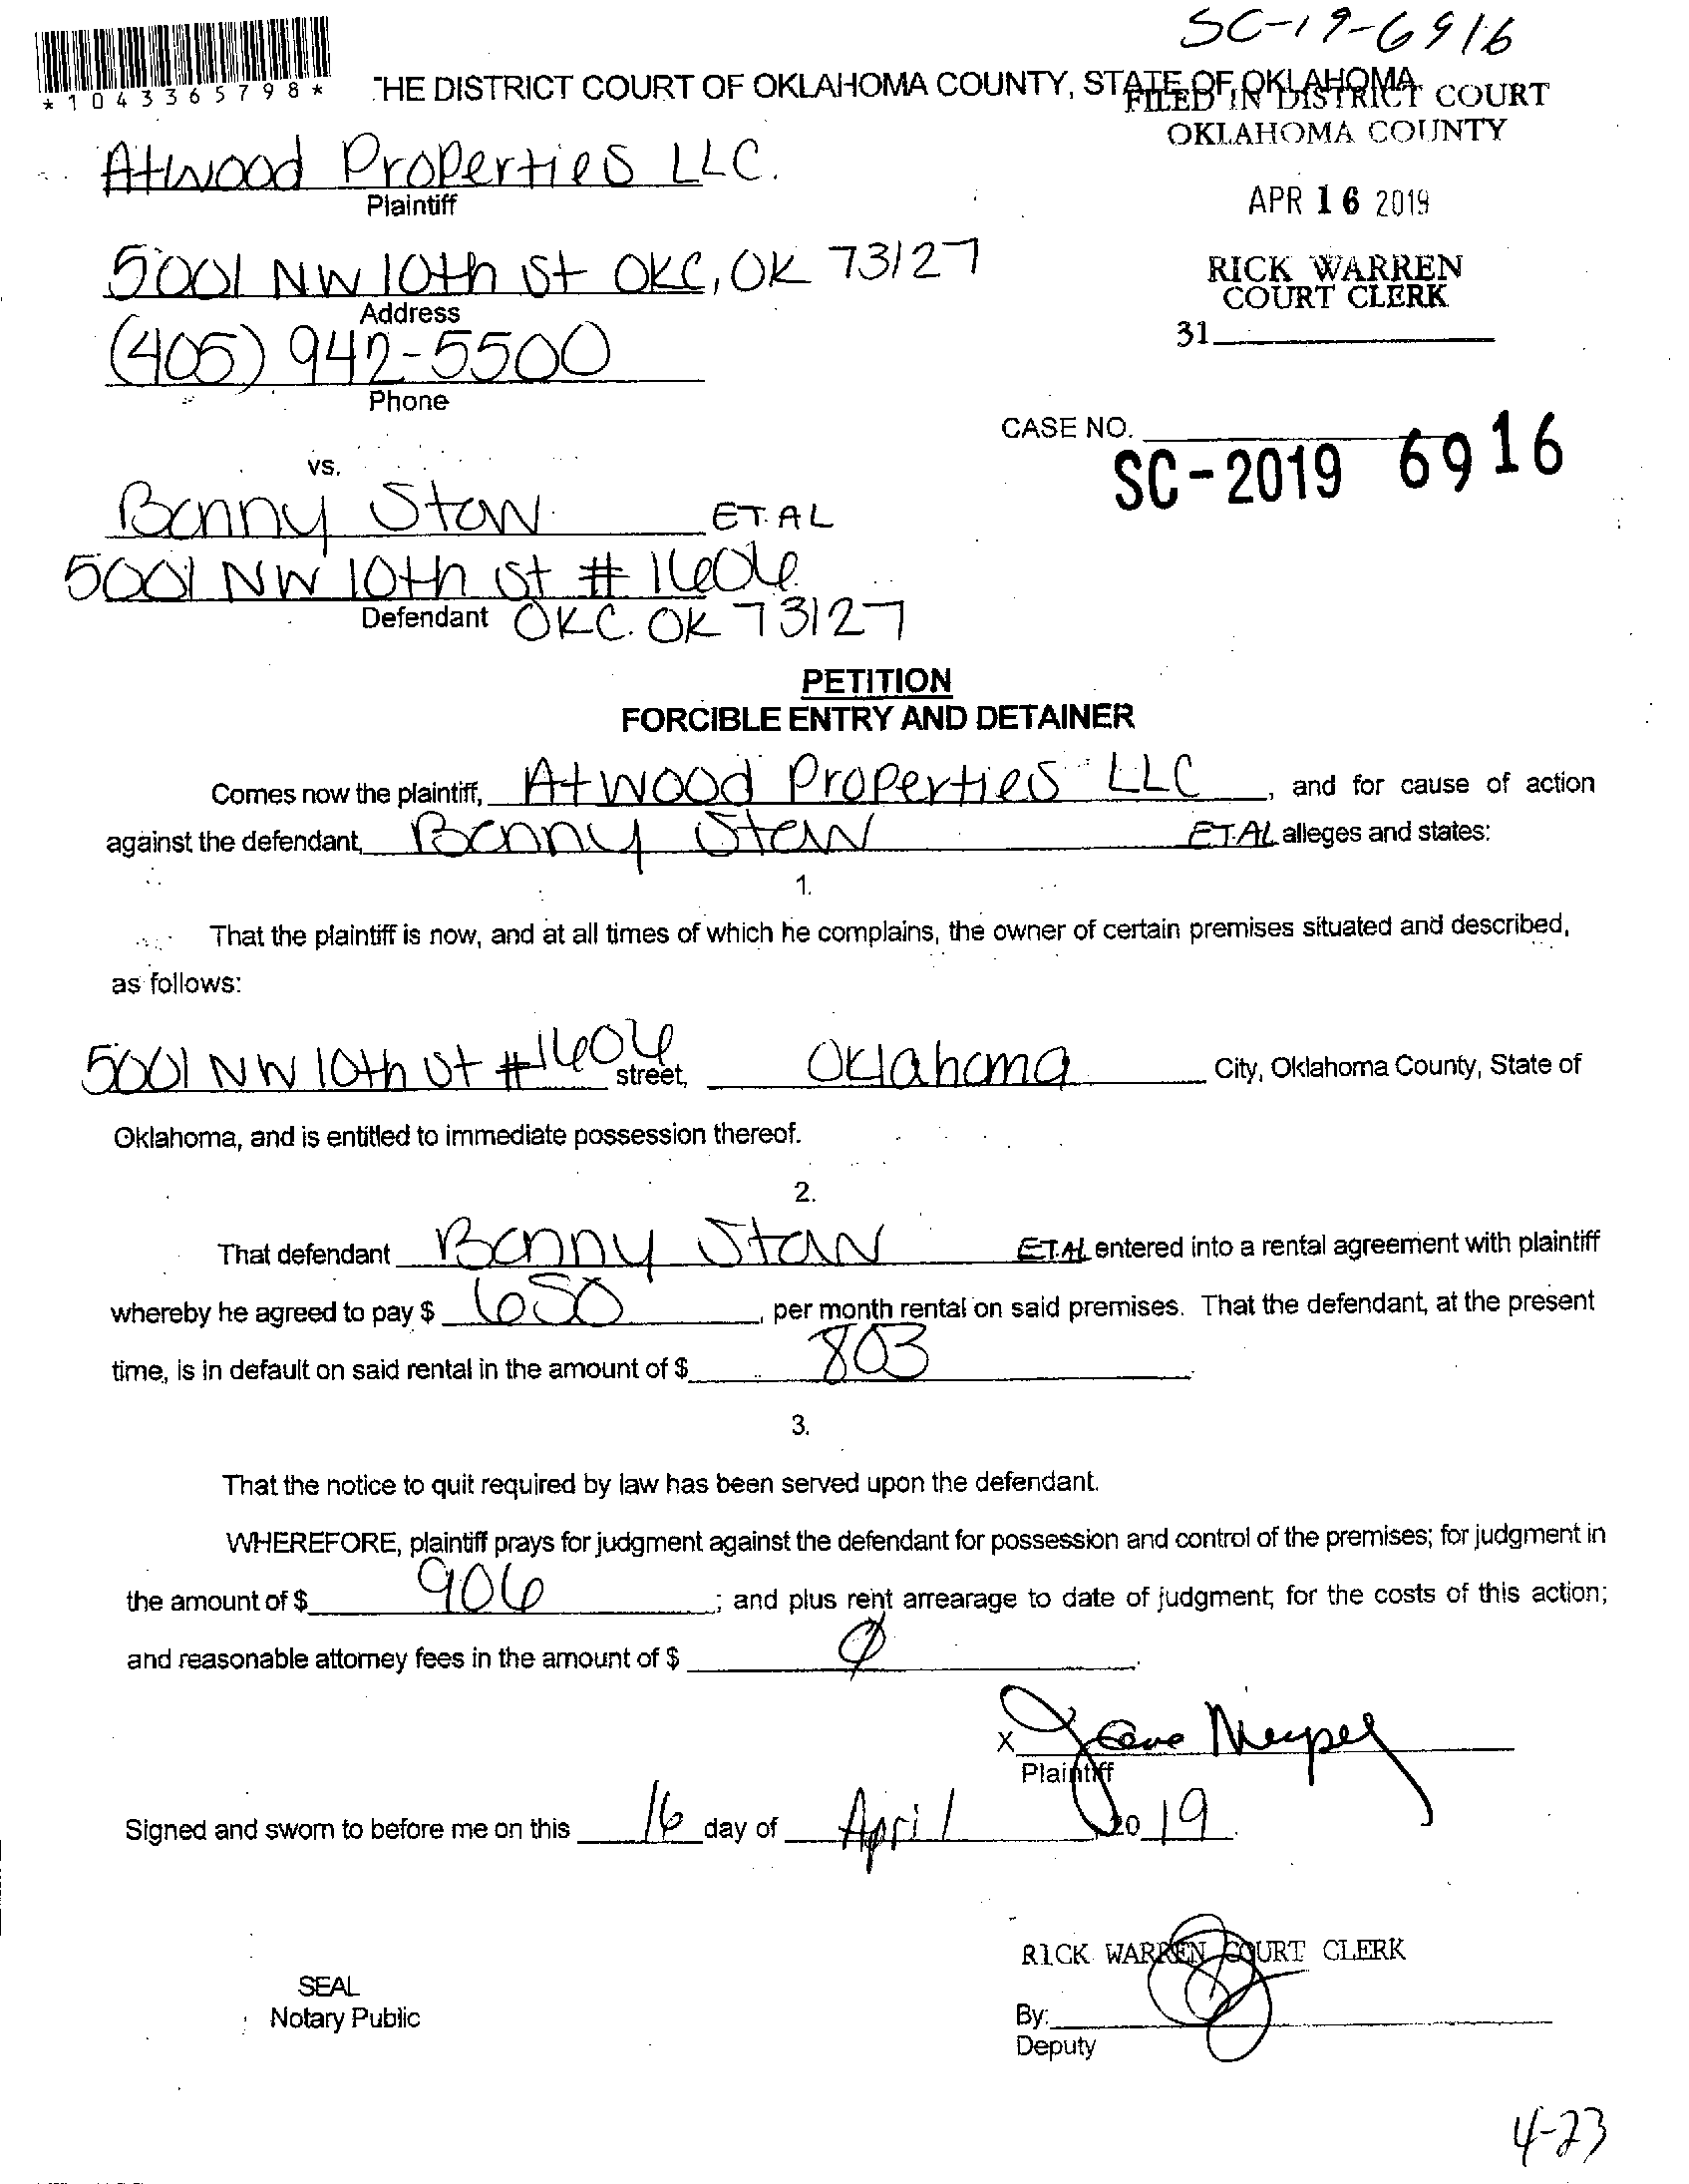 SC-19-6916
*1043365798*
THE DISTRICT COURT OF OKLAHOMA COUNTY, STATE OF OKLAHOMA
FILED IN DISTRICT COURT
OKLAHOMA COUNTY
Atwood Properties LLC.
Plaintiff
APR 16 2019
5001 NW 10th St OKC, OK 73127
Address
RICK WARREN
COURT CLERK
31
(405) 942-5500
Phone
CASE NO.
SC-2019 6916
vs.
ET. AL
5001 NW 10th St # 1606
Defendant OKC. OK 73127
PETITION
FORCIBLE ENTRY AND DETAINER
Comes now the plaintiff, Atwood Properties LLC, and for cause of action
against the defendant, ET. AL alleges and states:
1.
That the plaintiff is now, and at all times of which he complains, the owner of certain premises situated and described,
as follows:
5001 NW 10th St #1606 street, Oklahoma City, Oklahoma County, State of
Oklahoma, and is entitled to immediate possession thereof.
2.
That defendant ET. AL entered into a rental agreement with plaintiff
whereby he agreed to pay $ 650, per month rental on said premises. That the defendant, at the present
time, is in default on said rental in the amount of $ 803
3.
That the notice to quit required by law has been served upon the defendant.
WHEREFORE, plaintiff prays for judgment against the defendant for possession and control of the premises; for judgment in
the amount of $ 906; and plus rent arrearage to date of judgment; for the costs of this action;
and reasonable attorney fees in the amount of $ 0.
X
Plaintiff
Signed and sworn to before me on this 16 day of April, 2019.
RICK WARREN COURT CLERK
SEAL
Notary Public
By:
Deputy
4-23